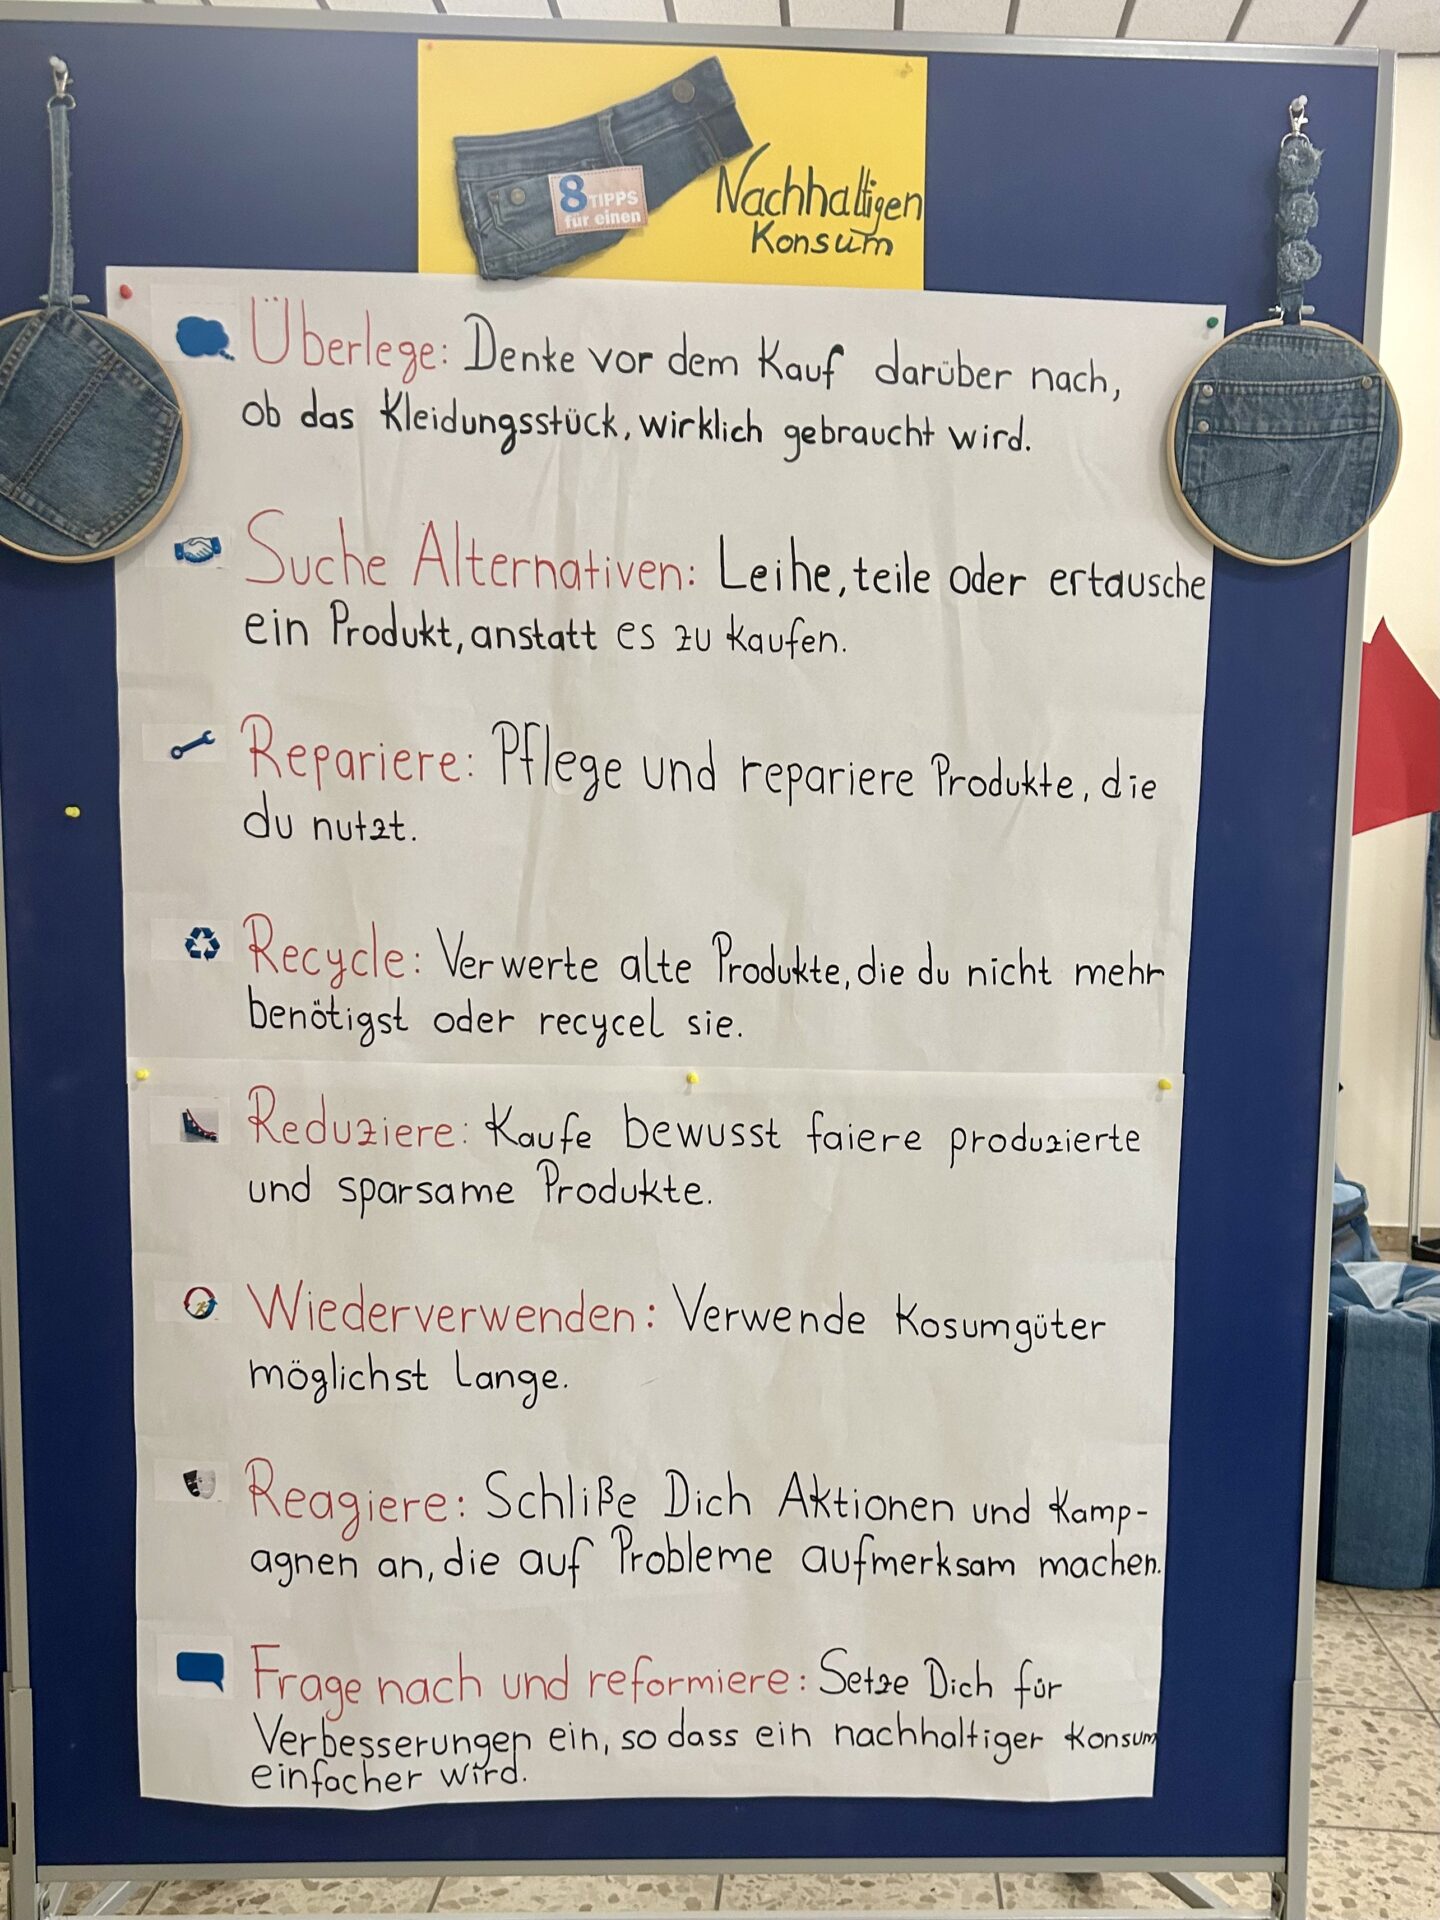 8 TIPPS
für einen
Nachhaltigen
Konsum
Überlege: Denke vor dem Kauf darüber nach,
ob das Kleidungsstück, wirklich gebraucht wird.
Suche Alternativen: Leihe, teile oder ertausche
ein Produkt, anstatt es zu kaufen.
Repariere: Pflege und repariere Produkte, die
du nutzt.
Recycle: Verwerte alte Produkte, die du nicht mehr
benötigst oder recycel sie.
Reduziere: Kaufe bewusst faiere produzierte
und sparsame Produkte.
Wiederverwenden: Verwende Kosumgüter
möglichst lange.
Reagiere: Schliße Dich Aktionen und Kamp-
agnen an, die auf Probleme aufmerksam machen.
Frage nach und reformiere: Setze Dich für
Verbesserungen ein, so dass ein nachhaltiger Konsum
einfacher wird.